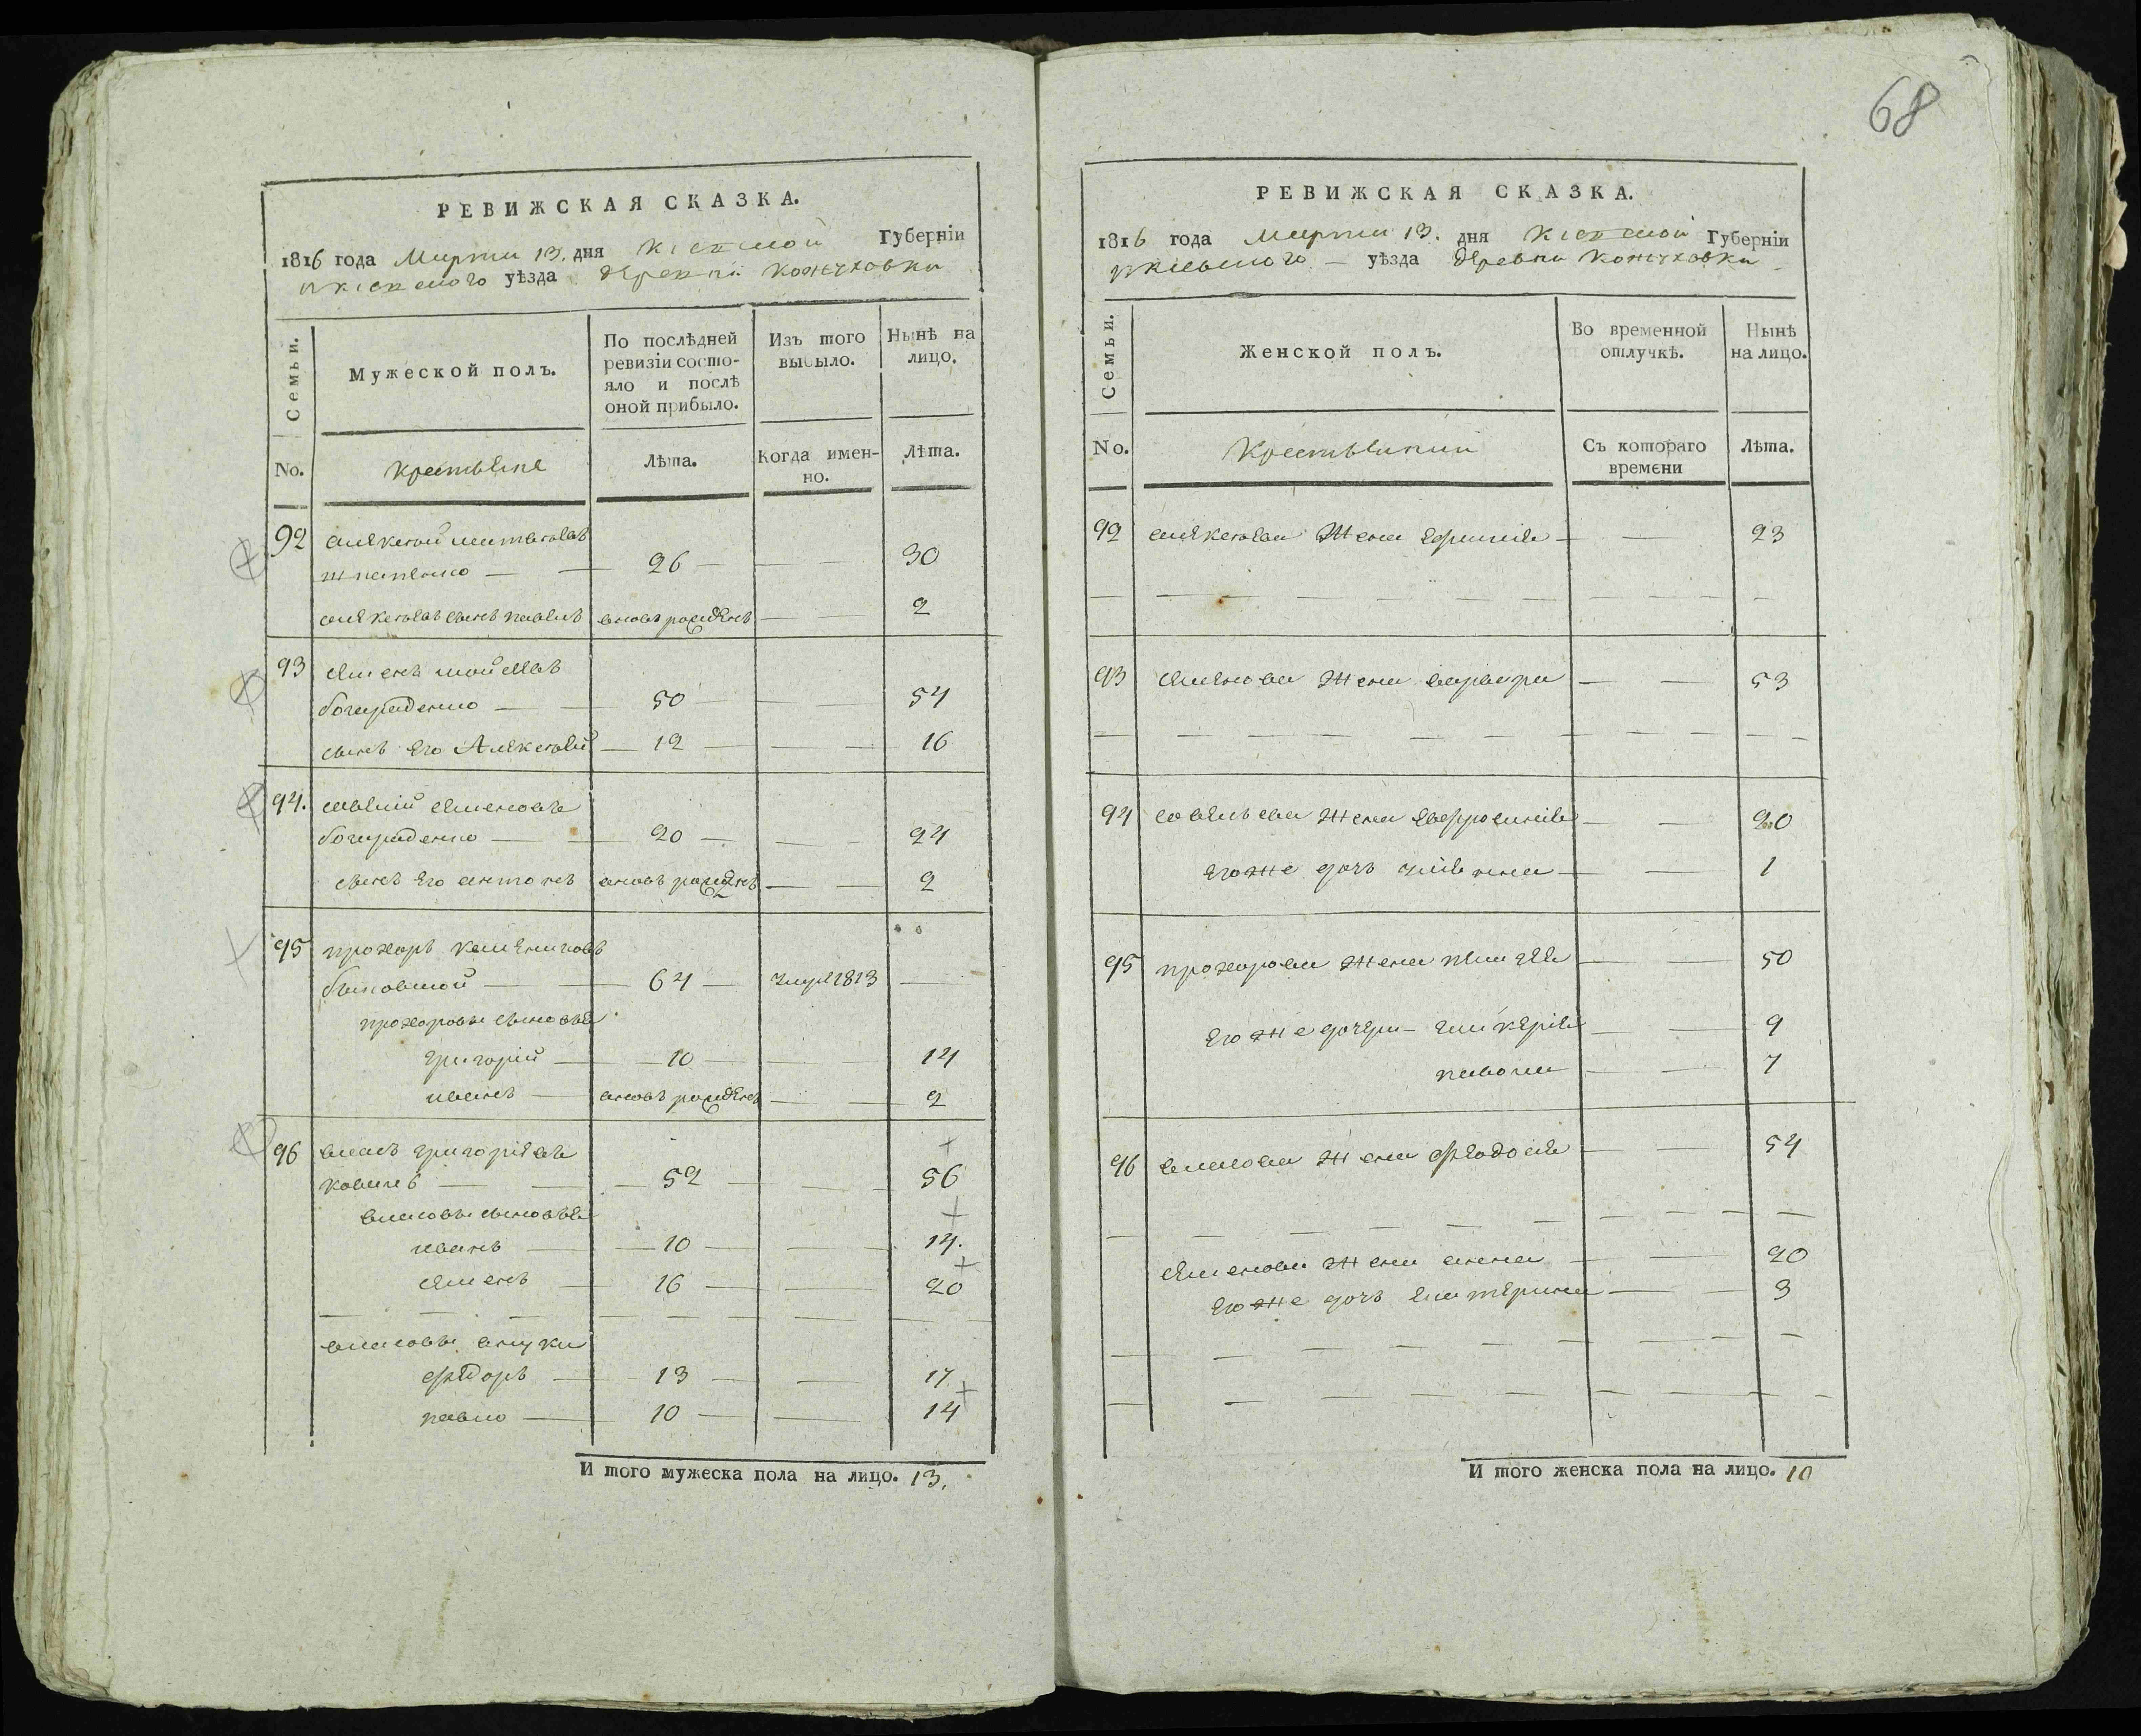 РЕВИЖСКАЯ СКАЗКА.
1816 года Марта 13. дня Кіевской Губерніи
уѣзда деревни Кожуховки
Семьи.
Мужеской полъ.
По послѣдней ревизіи состояло и послѣ оной прибыло.
Изъ того выбыло.
Нынѣ на лицо.
No.
Крестьяне
Лѣта.
Когда именно.
Лѣта.
92 алексей матвеевъ
26 30
алексеевъ сынъ павелъ вновь рожденъ 2
93 семенъ
богараденко 50 54
сынъ его Алексей 12 16
94. савелий семеновъ
богараденко 20 24
сынъ его антонъ вновь рожденъ 2
95 прохоръ
64 умре 1813
прохоровы сыновья
григорій 10 14
иванъ вновь рожденъ 2
96 власъ григоріевъ
52 56
власовы сыновья
иванъ 10 14.
семенъ 16 20
власовы внуки
федоръ 13 17
павло 10 14
И того мужеска пола на лицо. 13.
68
РЕВИЖСКАЯ СКАЗКА.
1816 года Марта 13. дня Кіевской Губерніи
уѣзда деревни Кожуховки
Семьи.
Женской полъ.
Во временной отлучкѣ.
Нынѣ на лицо.
No.
Съ котораго времени
Лѣта.
92 алексеева жена 23
93 семенова жена варвара 53
94 савельева жена евфросинія 20
его же дочь 1
95 прохорова жена 50
его же дочери гликерія 9
7
96 власова жена феодосія 54
семенова жена анна 20
его же дочь екатерина 3
И того женска пола на лицо. 10